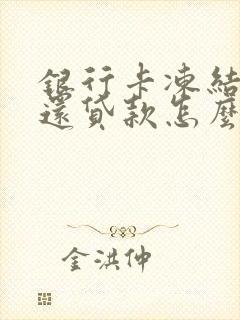 銀行卡凍結
還貸款怎麼
金洪仲